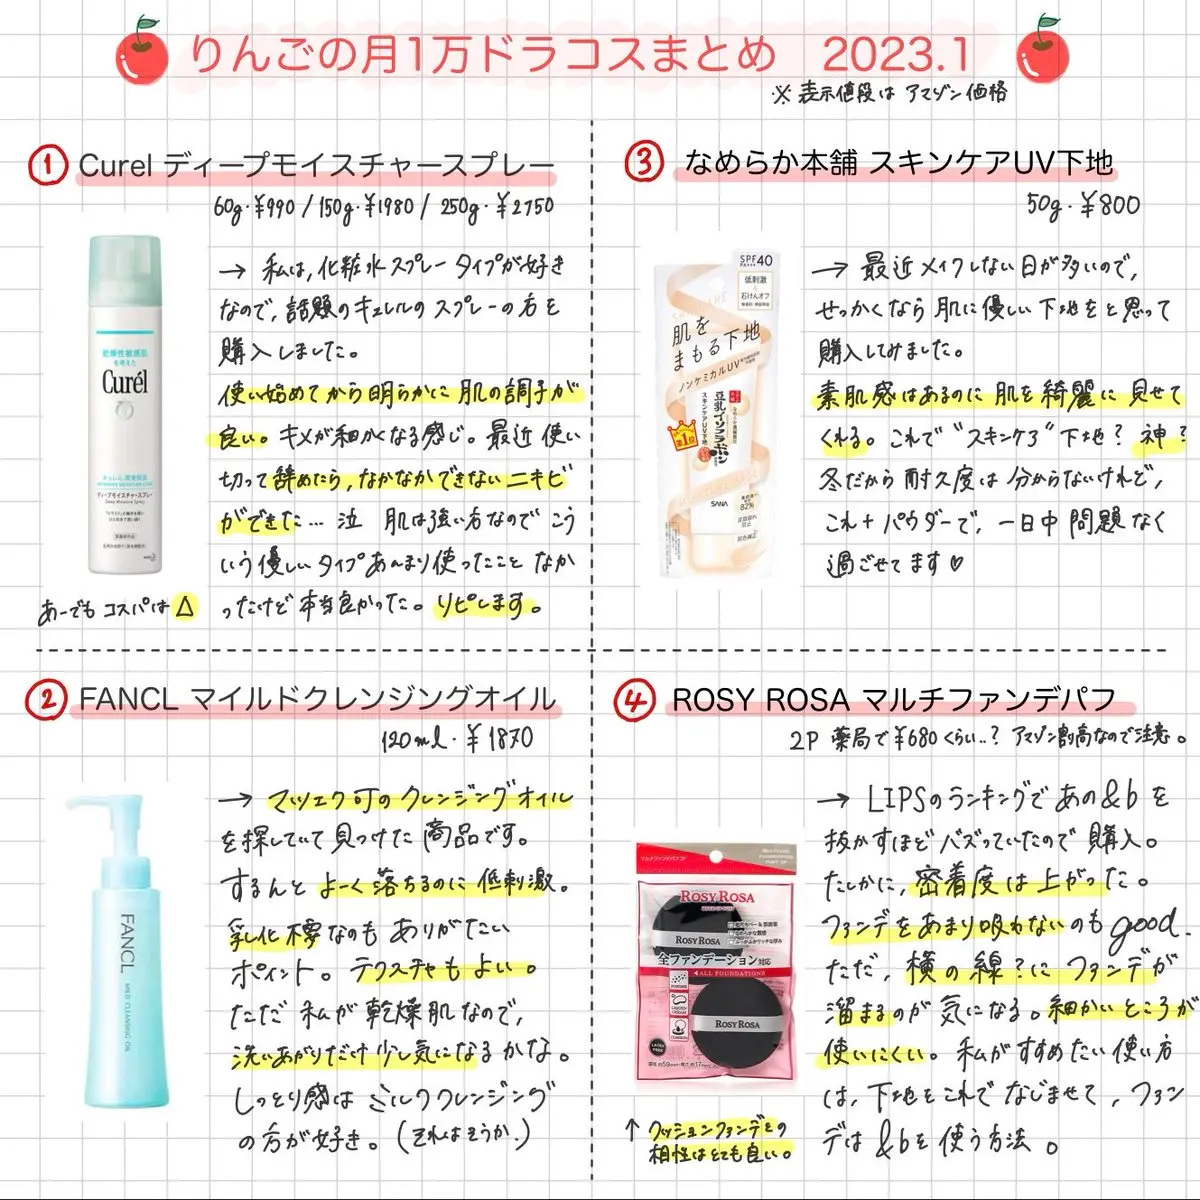 りんごの月1万ドラコスまとめ 2023.1
※ 表示値段は アマゾン価格
① Curel ディープモイスチャースプレー
60g・¥990 / 150g・¥1980 / 250g・¥2750
乾燥性敏感肌
を考えた
Curél
ディープモイスチャースプレー
→ 私は、化粧水スプレータイプが好き
なので、話題のキュレルのスプレーの方を
購入しました。
使い始めてから明らかに肌の調子が
良い。キメが細かくなる感じ。最近使い
切って辞めたら、なかなかできないニキビ
ができた…泣 肌は強い方なのでこう
いう優しいタイプあんまり使ったことなか
ったけど本当良かった。リピします。
あーでもコスパは△
③ なめらか本舗 スキンケアUV下地
50g・¥800
SPF40
PA+++
低刺激
石けんオフ
肌を
まもる下地
ノンケミカルUV
豆乳イソフラボン
スキンケアUV下地
第1位
SANA
82%
→ 最近メイクしない日が多いので、
せっかくなら肌に優しい下地をと思って
購入してみました。
素肌感はあるのに肌を綺麗に見せて
くれる。これで"スキンケア"下地?神?
冬だから耐久度は分からないけれど、
これ+パウダーで、一日中問題なく
過ごせてます♡
② FANCL マイルドクレンジングオイル
120ml・¥1870
FANCL
MILD CLEANSING OIL
→ マツエク可のクレンジングオイル
を探していて見つけた商品です。
するんとよーく落ちるのに低刺激。
乳化不要なのもありがたい
ポイント。テクスチャもよい。
ただ私が乾燥肌なので、
洗いあがりだけ少し気になるかな。
しっとり感はミルククレンジング
の方が好き。(それはそうか。)
④ ROSY ROSA マルチファンデパフ
2P 薬局で¥680くらい..? アマゾン割高なので注意。
マルチファンデパフ 2P
ROSY ROSA
ROSY ROSA
全ファンデーション対応
ALL FOUNDATIONS
ROSY ROSA
→ LIPSのランキングであの&bを
抜かすほどバズっていたので購入。
たしかに、密着度は上がった。
ファンデをあまり吸わないのもgood.
ただ、横の線?にファンデが
溜まるのが気になる。細かいところが
使いにくい。私がすすめたい使い方
は、下地をこれでなじませて、ファン
デは&bを使う方法。
↑ クッションファンデとの
相性はとても良い。